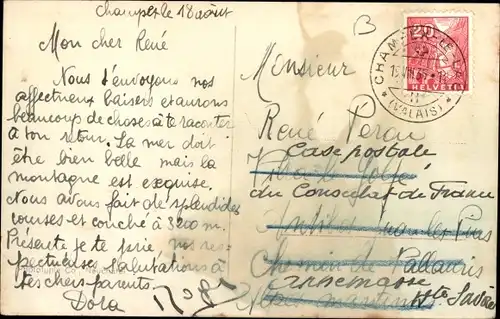 Champex le 18 août
Mon cher René
Nous t'envoyons nos
affectueux baisers et aurons
beaucoup de choses à te raconter
à ton retour. La mer doit
être bien belle mais la
montagne est exquise.
Nous avons fait de splendides
courses et couché à 3200 m.
Présente je te prie nos res-
pectueuses salutations à
tes chers parents.
Dora
B
20
HELVETIA
CHAMPEX
(VALAIS)
Monsieur
René
Case postale
du Consulat de France
Antibes Juan les Pins
Chemin de Vallauris
Annemasse
Hte Savoie